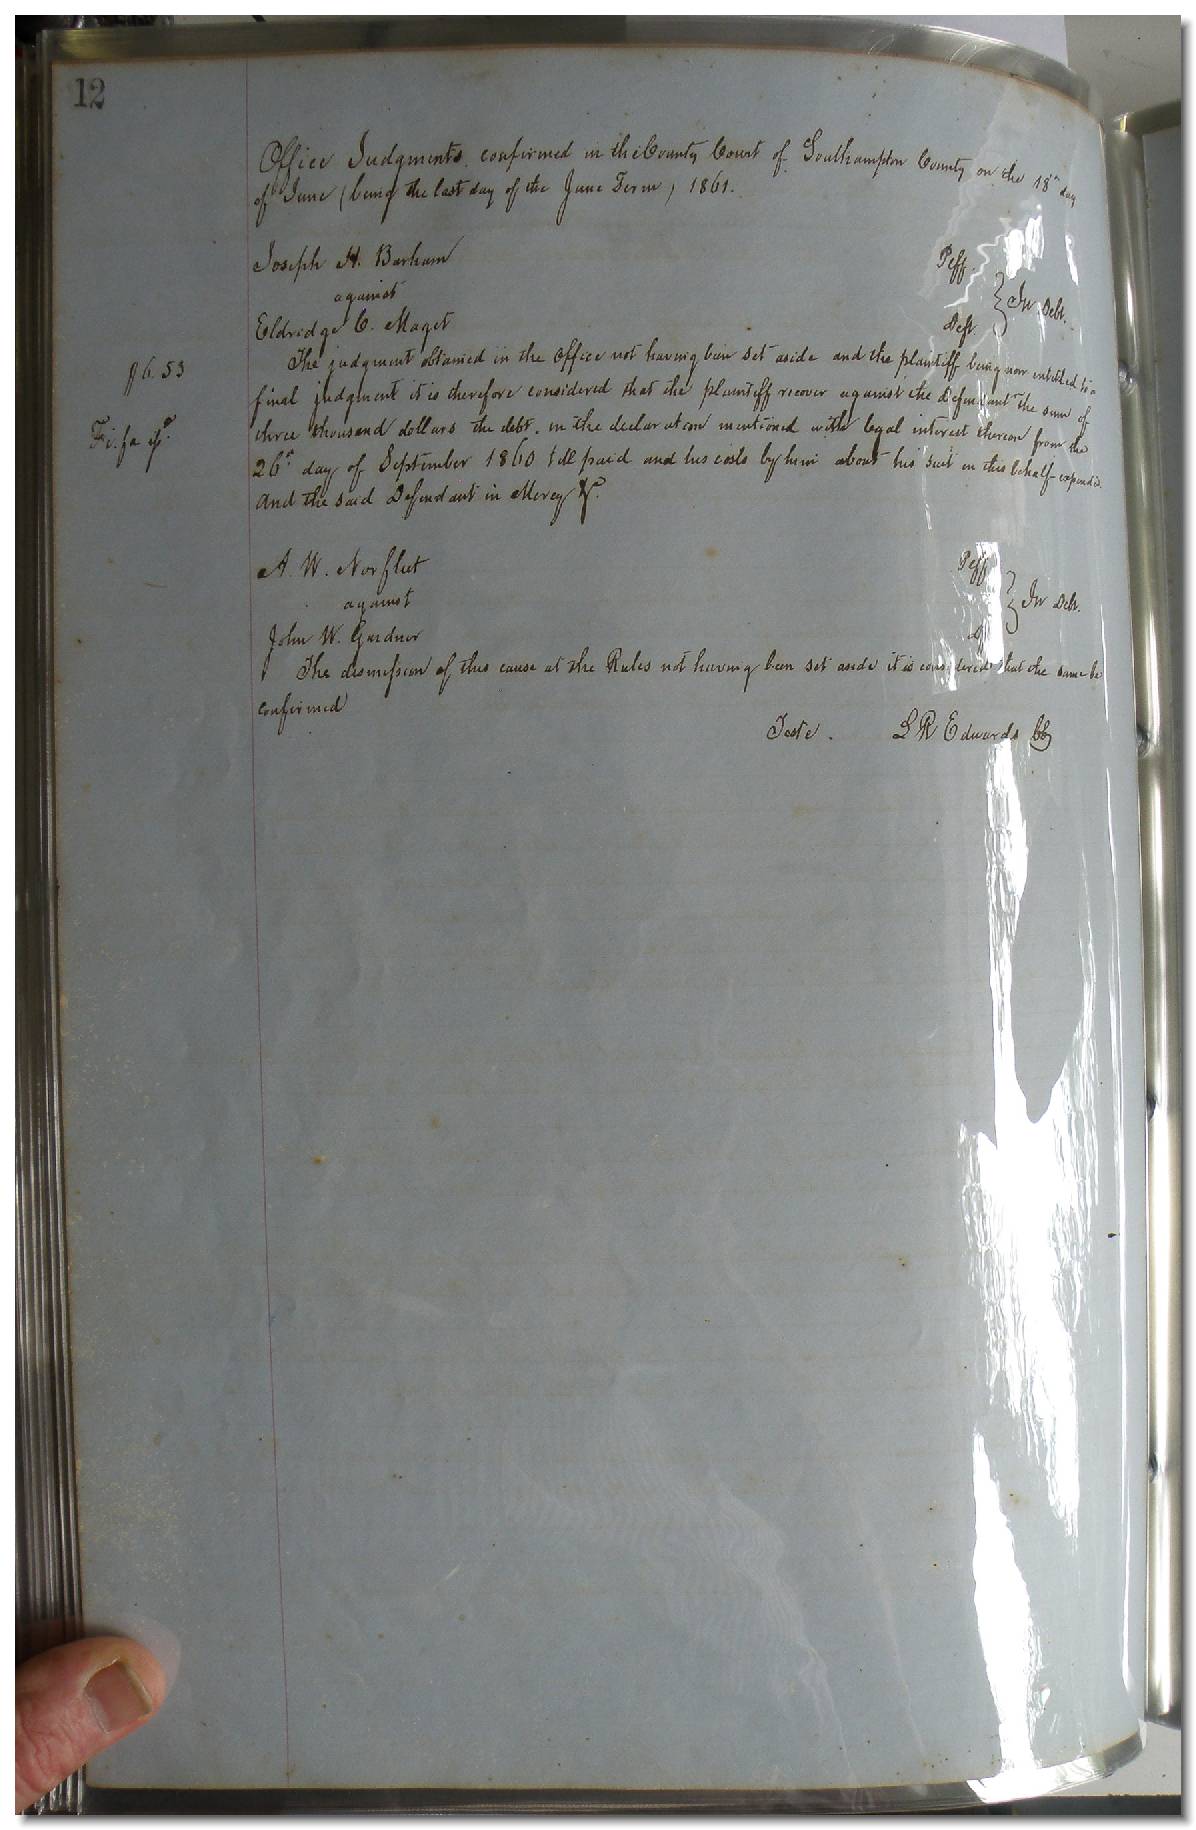 12
Office Judgments confirmed in the County Court of Southampton County on the 18th day
of June (being the last day of the June Term) 1861.
Joseph H. Barham Plff.
against } In Debt.
Eldridge C. Maget Deft.
The judgment obtained in the office not having been set aside and the plaintiff being now entitled to
6.53
final judgment it is therefore considered that the plaintiff recover against the defendant the sum of
Fi. fa
three thousand dollars the debt in the declaration mentioned with legal interest thereon from the
26th day of September 1860 till paid and his costs by him about his suit in this behalf expended
And the said Defendant in Mercy &c.
A. W. Norfleet Plff
against } In Debt.
John W. Gardner
The dismission of this cause at the Rules not having been set aside it is considered that the same be
confirmed
Teste. L R Edwards CC